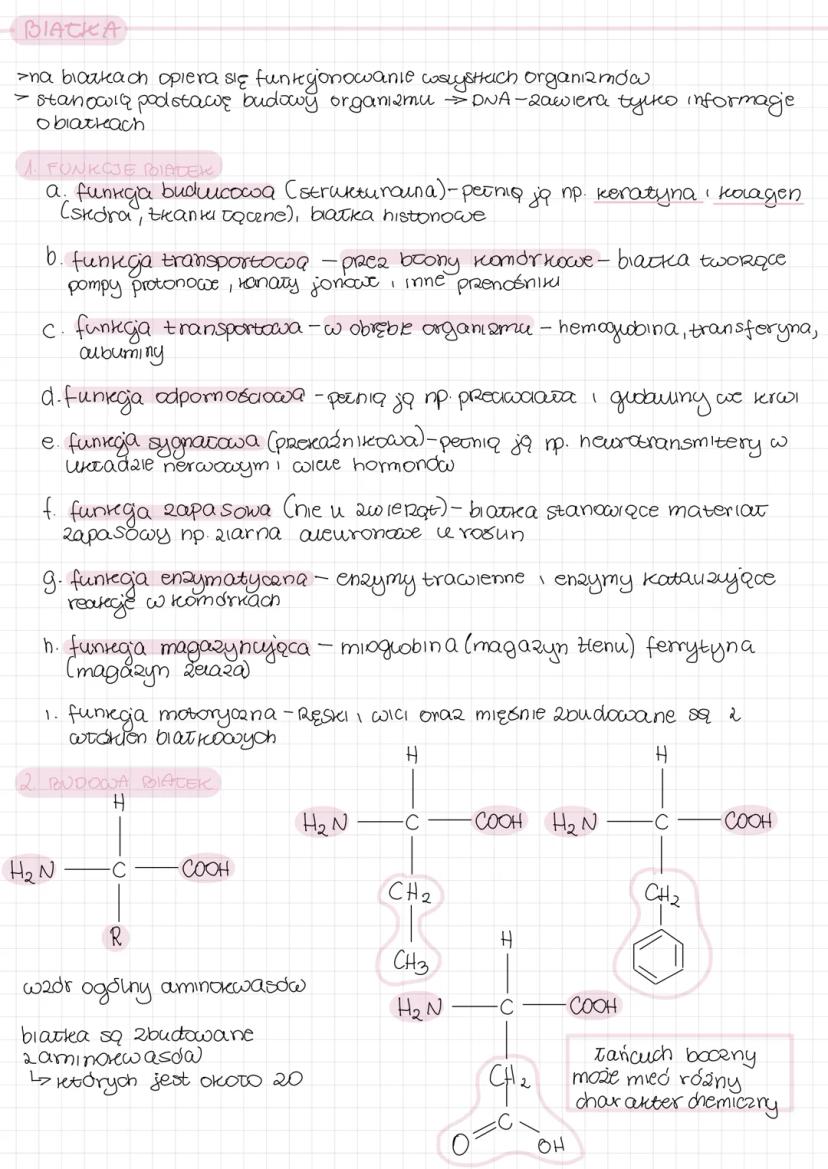 BIAŁKA
>na białkach opiera się funkcjonowanie wszystkich organizmów
> stanowią podstawę budowy organizmu → DNA – zawiera tylko informacje
o białkach
1. FUNKCJE BIAŁEK
a. funkcja budulcowa (strukturalna) – pełnią ją np. keratyna i kolagen
(skóra, tkanki łączne), białka histonowe
b. funkcja transportową – przez błony komórkowe – białka tworzące
pompy protonowe, kanały jonowe i inne przenośniki
c. funkcja transportowa – w obrębie organizmu – hemoglobina, transferyna,
albuminy
d. funkcja odpornościowa – pełnią ją np. przeciwciała i globuliny we krwi
e. funkcja sygnałowa (przekaźnikowa) – pełnią ją np. neurotransmitery w
układzie nerwowym i wiele hormonów
f. funkcja zapasowa (nie u zwierząt) – białka stanowiące materiał
zapasowy np. ziarna aleuronowe u roślin
g. funkcja enzymatyczna – enzymy trawienne i enzymy katalizujące
reakcje w komórkach
h. funkcja magazynująca – mioglobina (magazyn tlenu) ferrytyna
(magazyn żelaza)
i. funkcja motoryczna – rzęski i wici oraz mięśnie zbudowane są z
włókien białkowych
2. BUDOWA BIAŁEK
H
H₂N C COOH
R
wzór ogólny aminokwasów
białka są zbudowane
z aminokwasów
↳ których jest około 20
H
H₂N C COOH
CH₂
CH₃
H
H₂N C COOH
CH₂
H
H₂N C COOH
CH₂
C
O OH
łańcuch boczny
może mieć różny
charakter chemiczny